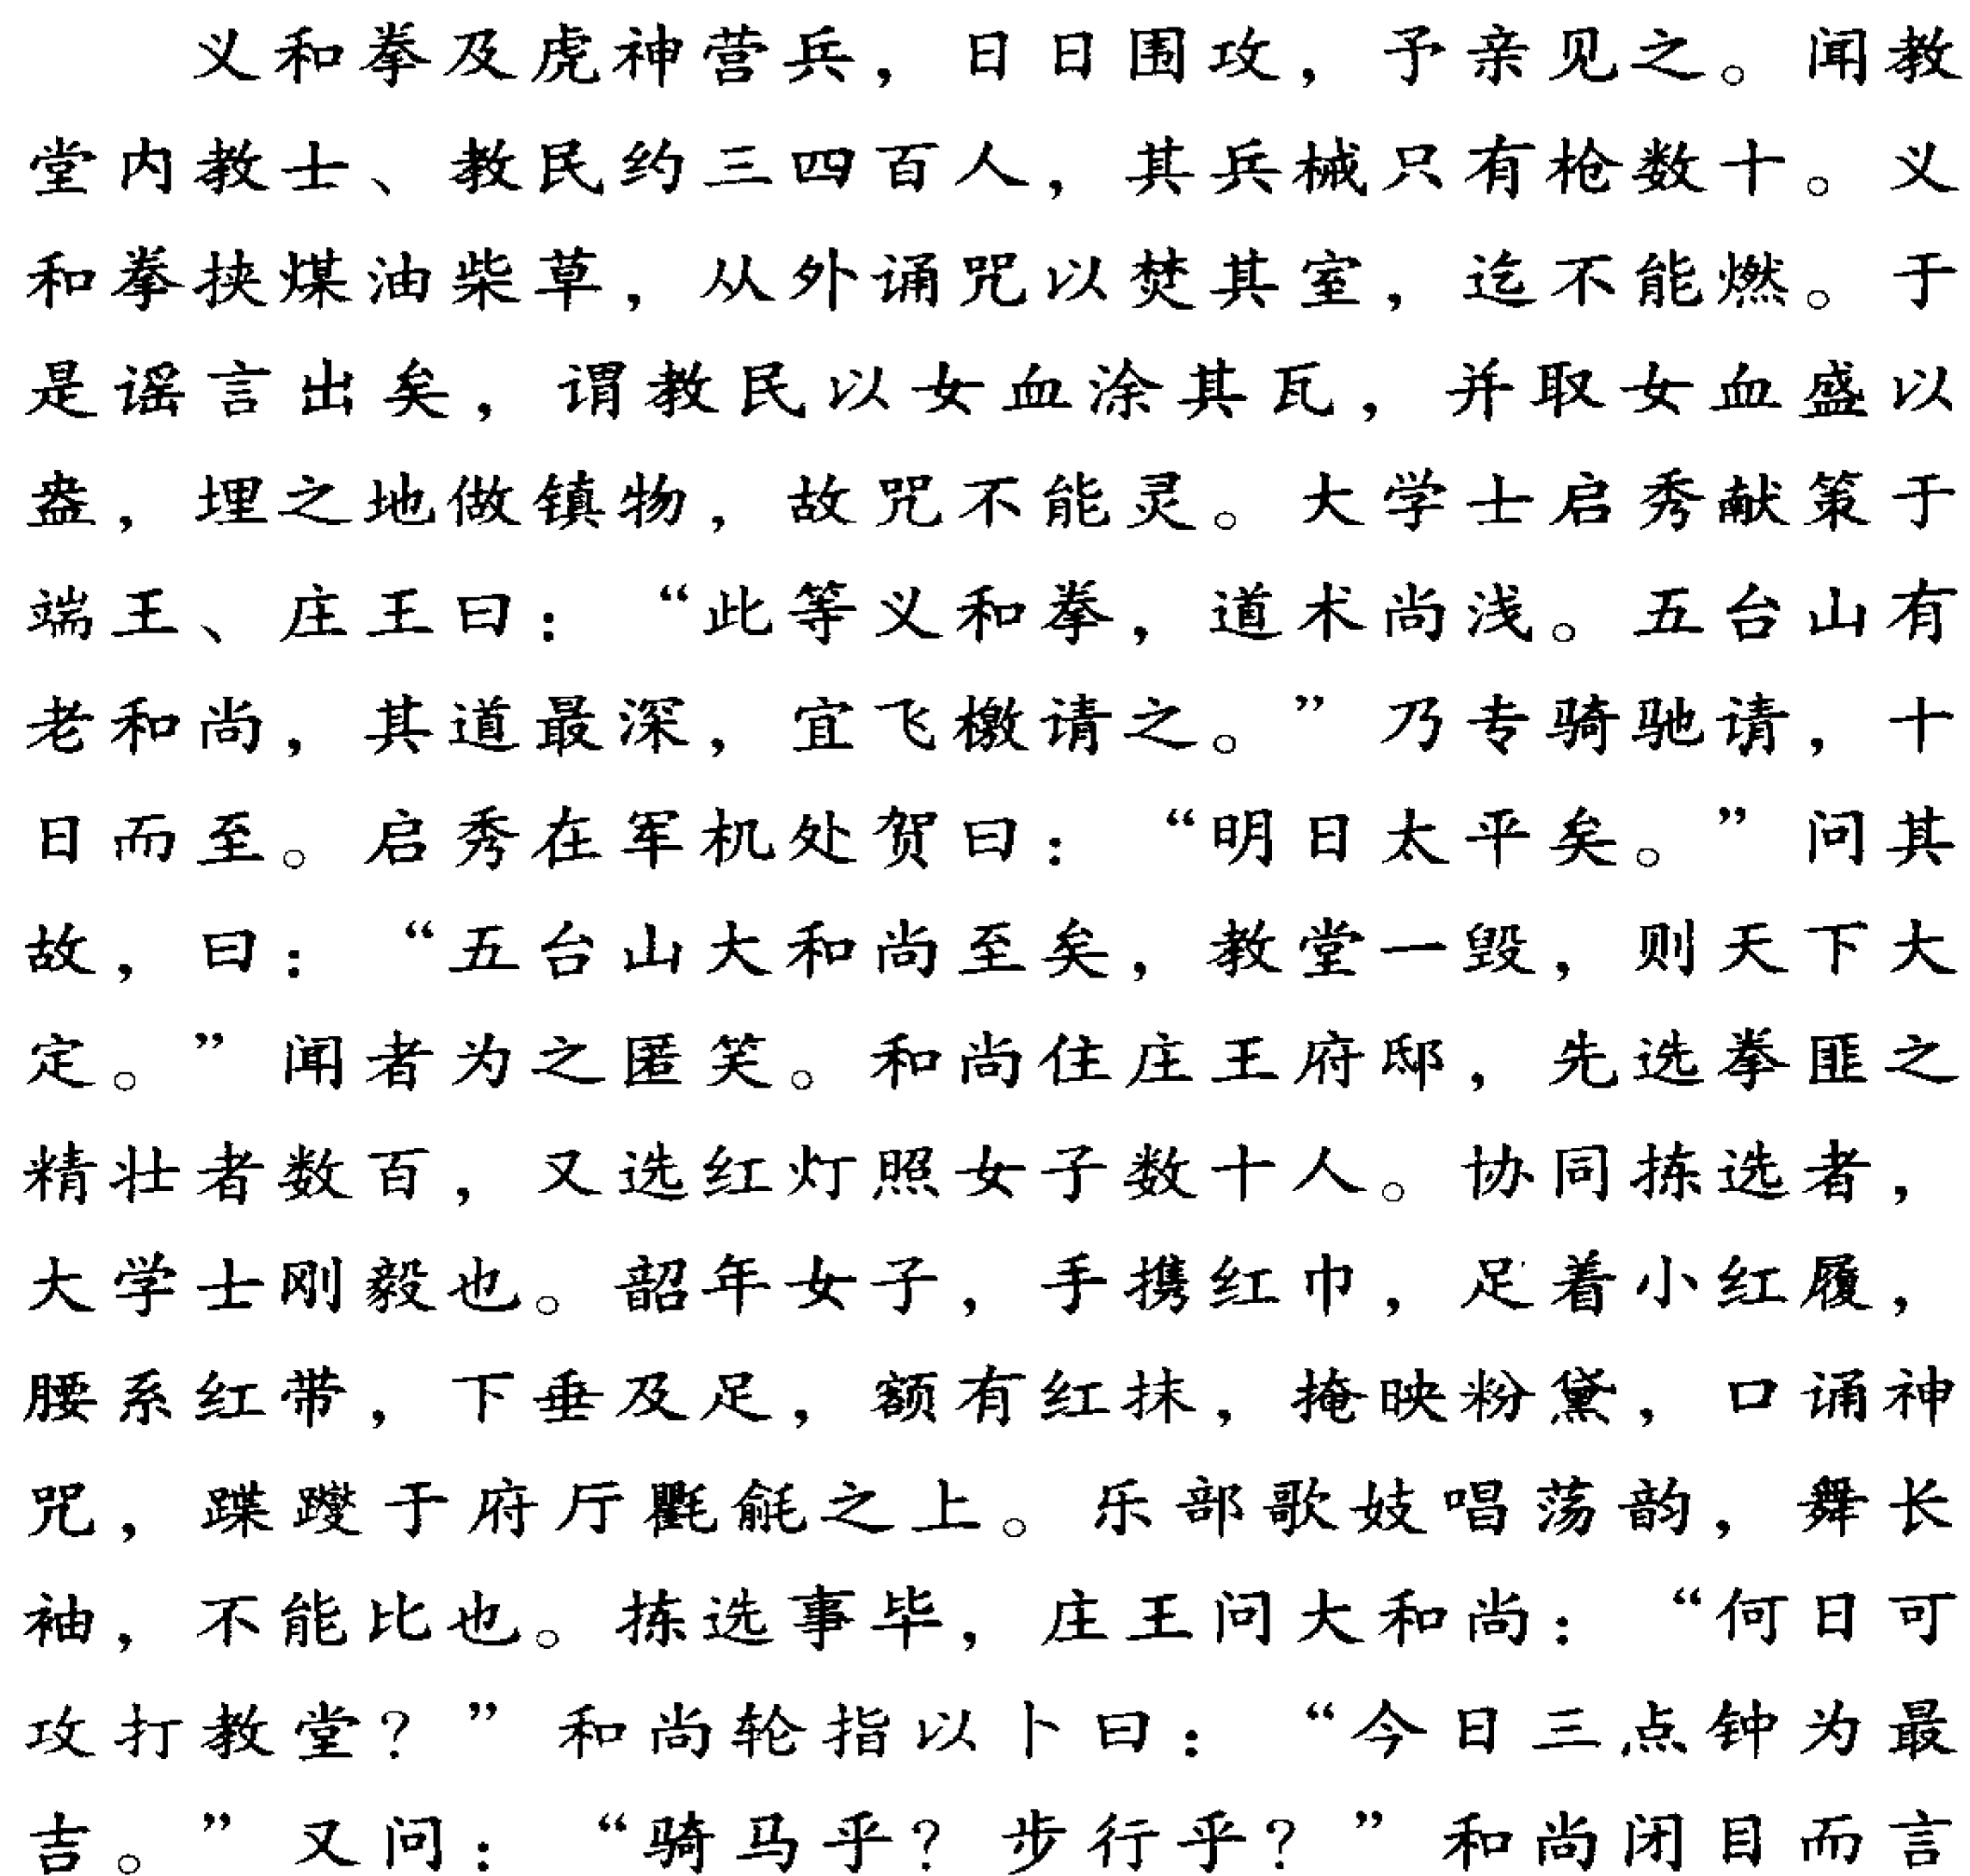 义和拳及虎神营兵，日日围攻，予亲见之。闻教
堂内教士、教民约三四百人，其兵械只有枪数十。义
和拳挟煤油柴草，从外诵咒以焚其室，迄不能燃。于
是谣言出矣，谓教民以女血涂其瓦，并取女血盛以
盎，埋之地做镇物，故咒不能灵。大学士启秀献策于
端王、庄王曰：“此等义和拳，道术尚浅。五台山有
老和尚，其道最深，宜飞檄请之。”乃专骑驰请，十
日而至。启秀在军机处贺曰：“明日太平矣。”问其
故，曰：“五台山大和尚至矣，教堂一毁，则天下大
定。”闻者为之匿笑。和尚住庄王府邸，先选拳匪之
精壮者数百，又选红灯照女子数十人。协同拣选者，
大学士刚毅也。韶年女子，手携红巾，足着小红履，
腰系红带，下垂及足，额有红抹，掩映粉黛，口诵神
咒，蹀躞于府厅氍毹之上。乐部歌妓唱荡韵，舞长
袖，不能比也。拣选事毕，庄王问大和尚：“何日可
攻打教堂？”和尚轮指以卜曰：“今日三点钟为最
吉。”又问：“骑马乎？步行乎？”和尚闭目而言